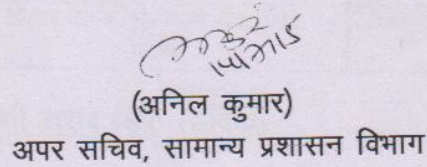 (अनिल कुमार)
अपर सचिव, सामान्य प्रशासन विभाग